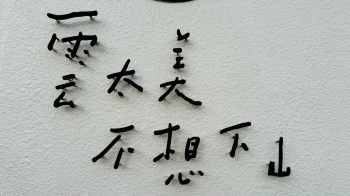 雲太美
不想下山